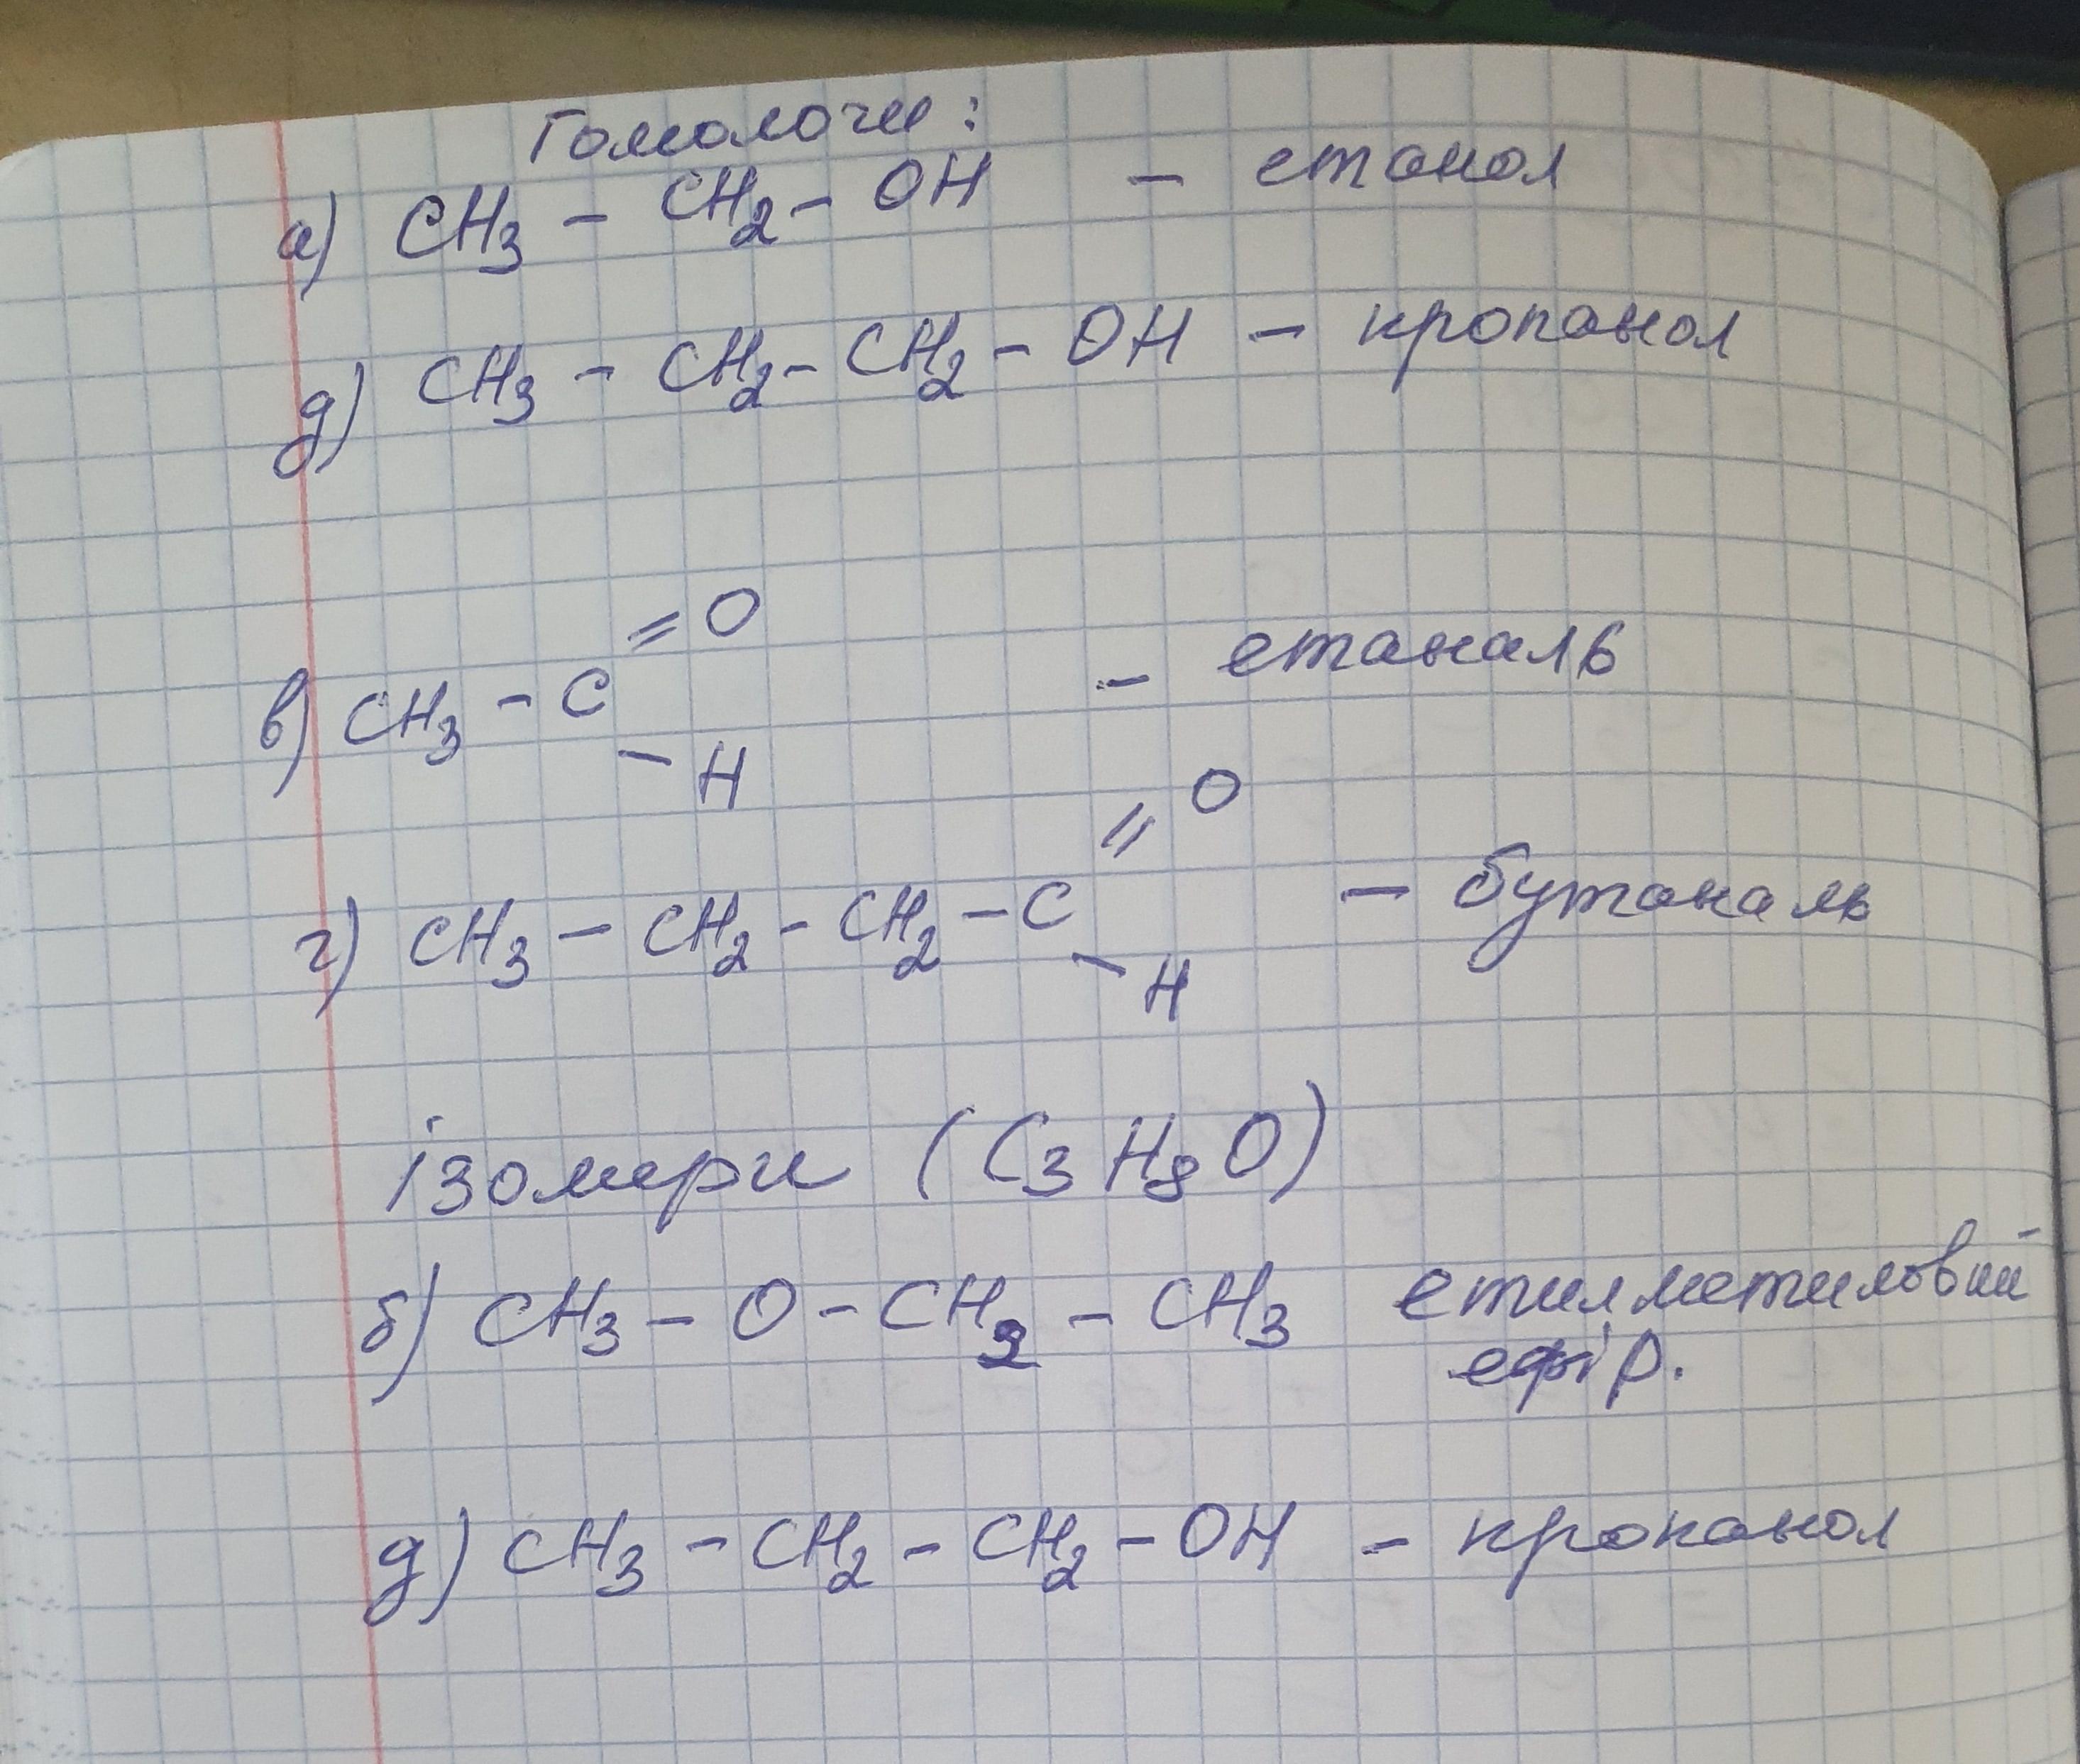 Гомологи:
а) CH3 - CH2 - OH - етанол
д) CH3 - CH2 - CH2 - OH - кропанол
= O
в) CH3 - C - етаналь
- H
= O
г) CH3 - CH2 - CH2 - C - бутаналь
- H
ізомери (C3H8O)
б) CH3 - O - CH2 - CH3 етилметиловий
ефір.
д) CH3 - CH2 - CH2 - OH - кропанол